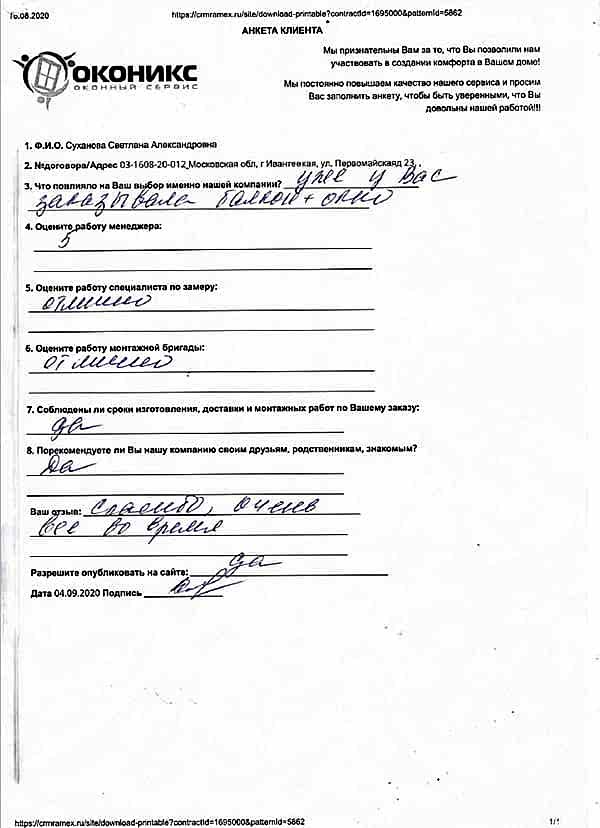 16.08.2020 https://crmramex.ru/site/download-printable?contractId=1695000&patternId=5862
АНКЕТА КЛИЕНТА
ОКОНИКС
ОКОННЫЙ СЕРВИС
Мы признательны Вам за то, что Вы позволили нам
участвовать в создании комфорта в Вашем доме!
Мы постоянно повышаем качество нашего сервиса и просим
Вас заполнить анкету, чтобы быть уверенными, что Вы
довольны нашей работой!!!
1. Ф.И.О. Суханова Светлана Александровна
2. №договора/Адрес 03-1608-20-012 Московская обл, г Ивантеевка, ул. Первомайская д 23, ,
3. Что повлияло на Ваш выбор именно нашей компании? уже у вас
заказывала балкон + окно
4. Оцените работу менеджера:
5
5. Оцените работу специалиста по замеру:
отлично
6. Оцените работу монтажной бригады:
отлично
7. Соблюдены ли сроки изготовления, доставки и монтажных работ по Вашему заказу:
да
8. Порекомендуете ли Вы нашу компанию своим друзьям, родственникам, знакомым?
Да
Ваш отзыв: Спасибо, очень
все во время
Разрешите опубликовать на сайте: да
Дата 04.09.2020 Подпись
https://crmramex.ru/site/download-printable?contractId=1695000&patternId=5862 1/1